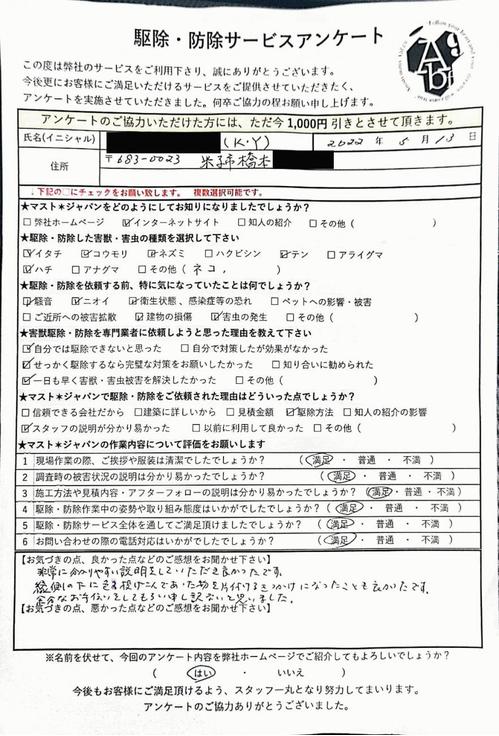 駆除・防除サービスアンケート
この度は弊社のサービスをご利用下さり、誠にありがとうございます。
今後更にお客様にご満足いただけるサービスをご提供させていただきたく、
アンケートを実施させていただきました。何卒ご協力の程お願い申し上げます。
アンケートのご協力いただけた方には、ただ今1,000円引きとさせて頂きます。
氏名(イニシャル) (K・Y) 2022年5月13日
住所 〒683-0023 米子市橋本
↓下記の□にチェックをお願い致します。 複数選択可能です。
★マスト✳ジャパンをどのようにしてお知りになりましたでしょうか?
□弊社ホームページ ☑インターネットサイト □知人の紹介 □その他( )
★駆除・防除した害獣・害虫の種類を選択して下さい
☑イタチ ☑コウモリ ☑ネズミ □ハクビシン ☑テン □アライグマ
☑ハチ □アナグマ □その他(ネコ, )
★駆除・防除を依頼する前、特に気になっていたことは何でしょうか?
☑騒音 ☑ニオイ ☑衛生状態、感染症等の恐れ □ペットへの影響・被害
□ご近所への被害拡散 ☑建物の損傷 ☑害虫の発生 □その他( )
★害獣駆除・防除を専門業者に依頼しようと思った理由を教えて下さい
☑自分では駆除できないと思った □自分で対策したが効果がなかった
☑せっかく駆除するなら完璧な対策をお願いしたかった □知り合いに勧められた
☑一日も早く害獣・害虫被害を解決したかった □その他( )
★マスト✳ジャパンで駆除・防除をご依頼された理由はどういった点でしょうか?
□信頼できる会社だから □建築に詳しいから □見積金額 ☑駆除方法 □知人の紹介の影響
☑スタッフの説明が分かり易かった □以前に利用して良かった □その他( )
★マスト✳ジャパンの作業内容について評価をお願いします
1 現場作業の際、ご挨拶や服装は清潔でしたでしょうか? (満足・普通・不満)
2 調査時の被害状況の説明は分かり易かったでしょうか? (満足・普通・不満)
3 施工方法や見積内容・アフターフォローの説明は分かり易かったでしょうか? (満足・普通・不満)
4 駆除・防除作業中の姿勢や取り組み態度はいかがでしたでしょうか? (満足・普通・不満)
5 駆除・防除サービス全体を通してご満足頂けましたでしょうか? (満足・普通・不満)
6 お問い合わせの際の電話対応はいかがでしたでしょうか? (満足・普通・不満)
【お気づきの点、良かった点などのご感想をお聞かせ下さい】
非常に分かりやすい説明をしていただき良かったです。
縁側の下に投げこんであった物を片付けるきっかけになったことも良かったです。
余分なお手伝いをしてもらい申し訳ないと思いました。
【お気づきの点、悪かった点などのご感想をお聞かせ下さい】
※名前を伏せて、今回のアンケート内容を弊社ホームページでご紹介してもよろしいでしょうか?
( はい ・ いいえ )
今後もお客様にご満足頂けるよう、スタッフ一丸となり努力してまいります。
アンケートのご協力ありがとうございました。